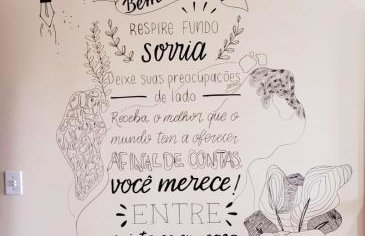 RESPIRE FUNDO
sorria
Deixe suas preocupações
de lado
Receba, o melhor que o
mundo tem a oferecer
AFINAL DE CONTAS,
você merece!
ENTRE